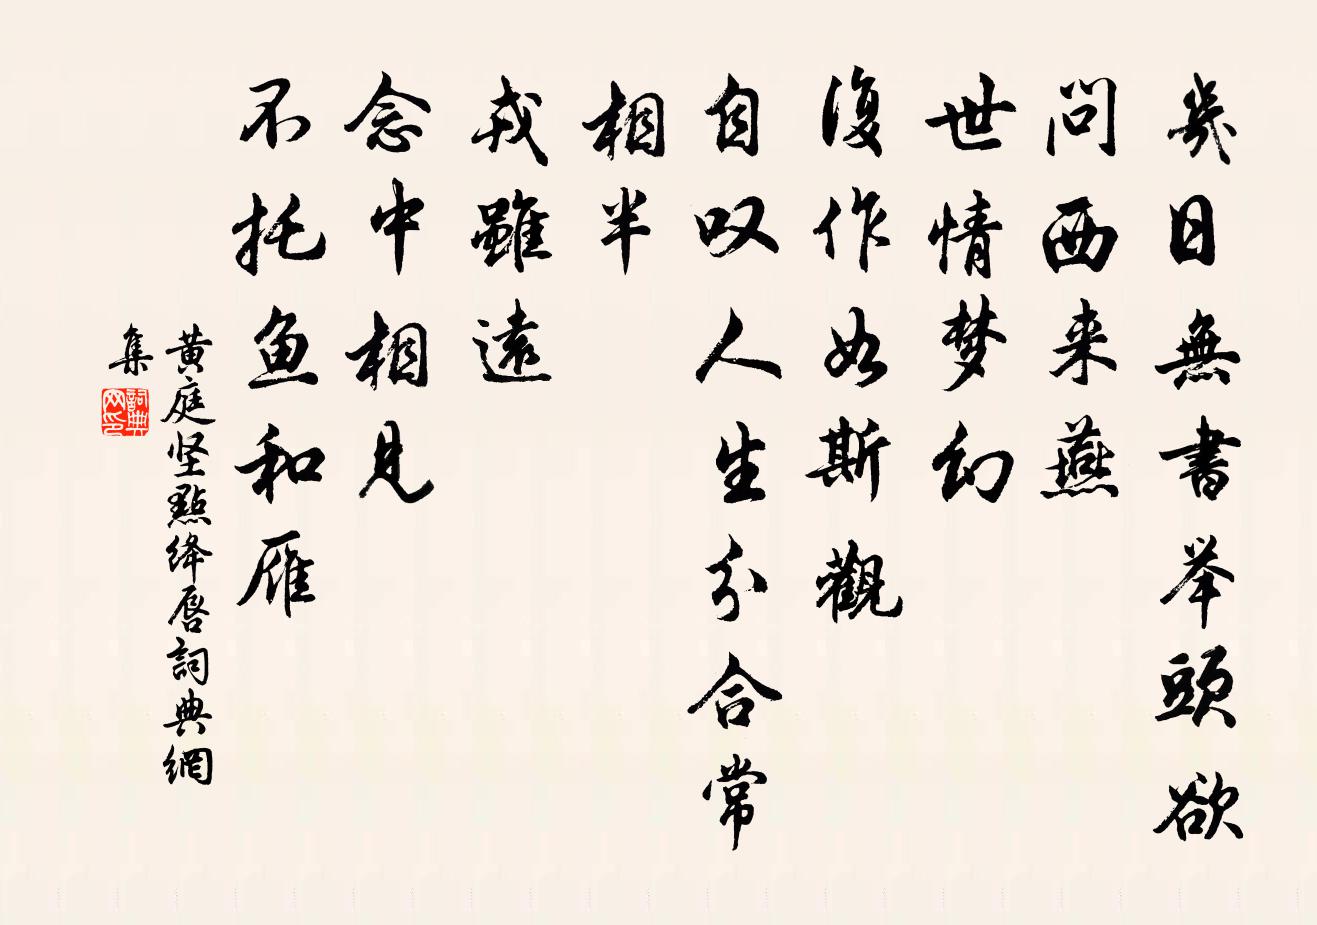 幾日無書举頭欲
問西来燕
世情梦幻
復作如斯觀
自叹人生分合常
相半
戎雖遠
念中相見
不托鱼和雁
黄庭坚點绛唇詞典網
集
詞典
网印